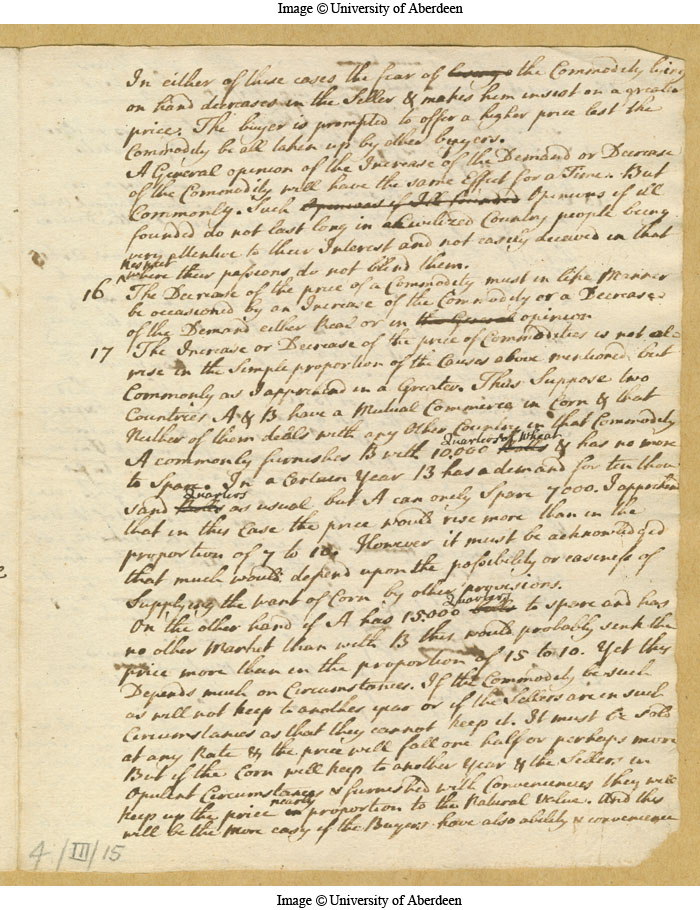 Image © University of Aberdeen
In either of these cases the fear of the Commodity lying
on hand decreases in the Seller & makes him insist on a greater
price. The buyer is prompted to offer a higher price lest the
Commodity be all taken up by other buyers.
A General opinion of the Increase of the Demand or Decrease
of the Commodity will have the same Effect for a Time. But
Commonly Such Opinions if Ill founded Opinions if ill
founded do not last long in a Civilized Country people being
very attentive to their Interest and not easily deceived in that
Respect
where their passions do not blind them.
16 The Decrease of the price of a Commodity must in like Manner
be occasioned by an Increase of the Commodity or a Decrease
of the Demand either Real or in the General opinion
17 The Increase or Decrease of the price of Commodities is not al-
wise in the Simple proportion of the Causes above mentioned, but
Commonly as I apprehend in a Greater. Thus Suppose two
Countries A & B have a Mutual Commerce in Corn & that
Neither of them deals with any Other Country in that Commodity
Quarters of Wheat
A commonly furnishes B with 10.000 Bolls & has no more
to Spare. In a Certain Year B has a demand for ten thou
Quarters
sand Bolls as usual but A can onely Spare 7000. I apprehend
that in this Case the price would rise more than in the
proportion of 7 to 10. However it must be acknowledged
that much would depend upon the possibility or easiness of
Supplying the want of Corn by other provisions.
Quarters
On the other hand if A has 15.000 Bolls to spare and has
no other Market than with B this would probably sink the
price more than in the proportion of 15 to 10. Yet this
Depends much on Circumstances. If the Commodity be such
as will not keep to another year or if the Sellers are in such
Circumstances as that they cannot keep it. It must be sold
at any Rate & the price will fall one half or perhaps more
But if the Corn will keep to another Year & the Sellers in
Opulent Circumstances & furnished with Conveniences they will
nearly
keep up the price in proportion to the Natural Value. And this
will be the more easy if the Buyers have also ability & convenience
4/III/15
Image © University of Aberdeen